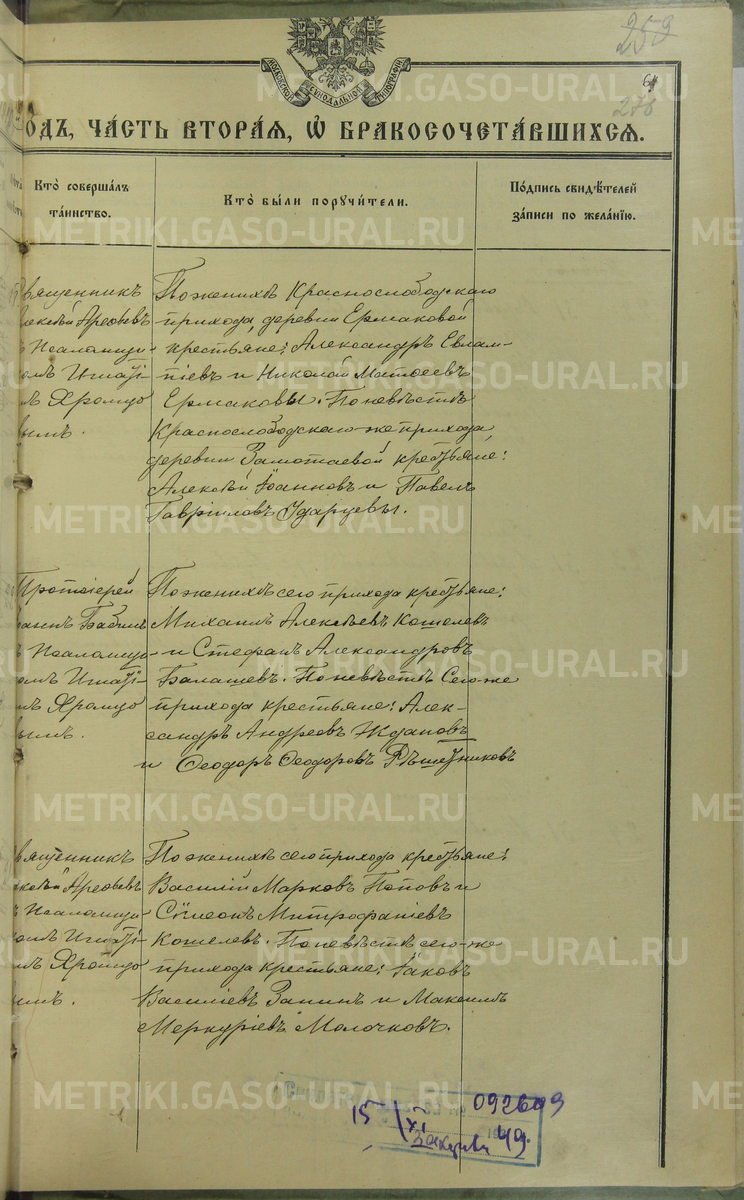 259
64
276
МОСКОВСКОЙ СѴНОДАЛЬНОЙ ТИПОГРАФІИ
ОДЪ, ЧА́СТЬ ВТОРА́Я, Ѡ҆ БРАКОСОЧЕТА́ВШИХСЯ.
Кто̀ соверша́лъ
та́инство.
Кто̀ бы́ли поручи́тели.
По́дпись свидѣ́телей
за́писи по жела́нію.
вященникъ
лексѣй Арефьевъ
ъ Псаломщи-
омъ Игнаті-
мъ Храмцо
вымъ.
По женихѣ Краснослободскаго
прихода, деревни Ермаковой
крестьяне: Александръ Евлам-
піевъ и Николай Матѳеевъ
Ермаковы. По невѣстѣ
Краснослободскаго-же прихода,
деревни Замотаевой крестьяне:
Алексѣй Іоанновъ и Павелъ
Гавріиловъ Ударцевы.
Протоіерей
оаннъ Бабинъ
ъ Псаломщи-
омъ Игнаті-
мъ Храмцо
вымъ.
По женихѣ сего прихода крестьяне:
Михаилъ Алексѣевъ Кошелевъ
и Стефанъ Александровъ
Балашевъ. По невѣстѣ Сего-же
прихода крестьяне: Алек-
сандръ Андреевъ Ждановъ
и Ѳеодоръ Ѳеодоровъ Рѣшетниковъ
вященникъ
лексѣй Арефьевъ
ъ Псаломщи-
омъ Игнаті-
мъ Храмцо
вымъ.
По женихѣ сего прихода крестьяне:
Василій Марковъ Поповъ и
Сѵмеонъ Митрофаніевъ
Кошелевъ. По невѣстѣ сего-же
прихода крестьяне: Іаковъ
Василіевъ Занинъ и Максимъ
Меркуріевъ Молочковъ.
092603
15/XI
49.
METRIKI.GASO-URAL.RU